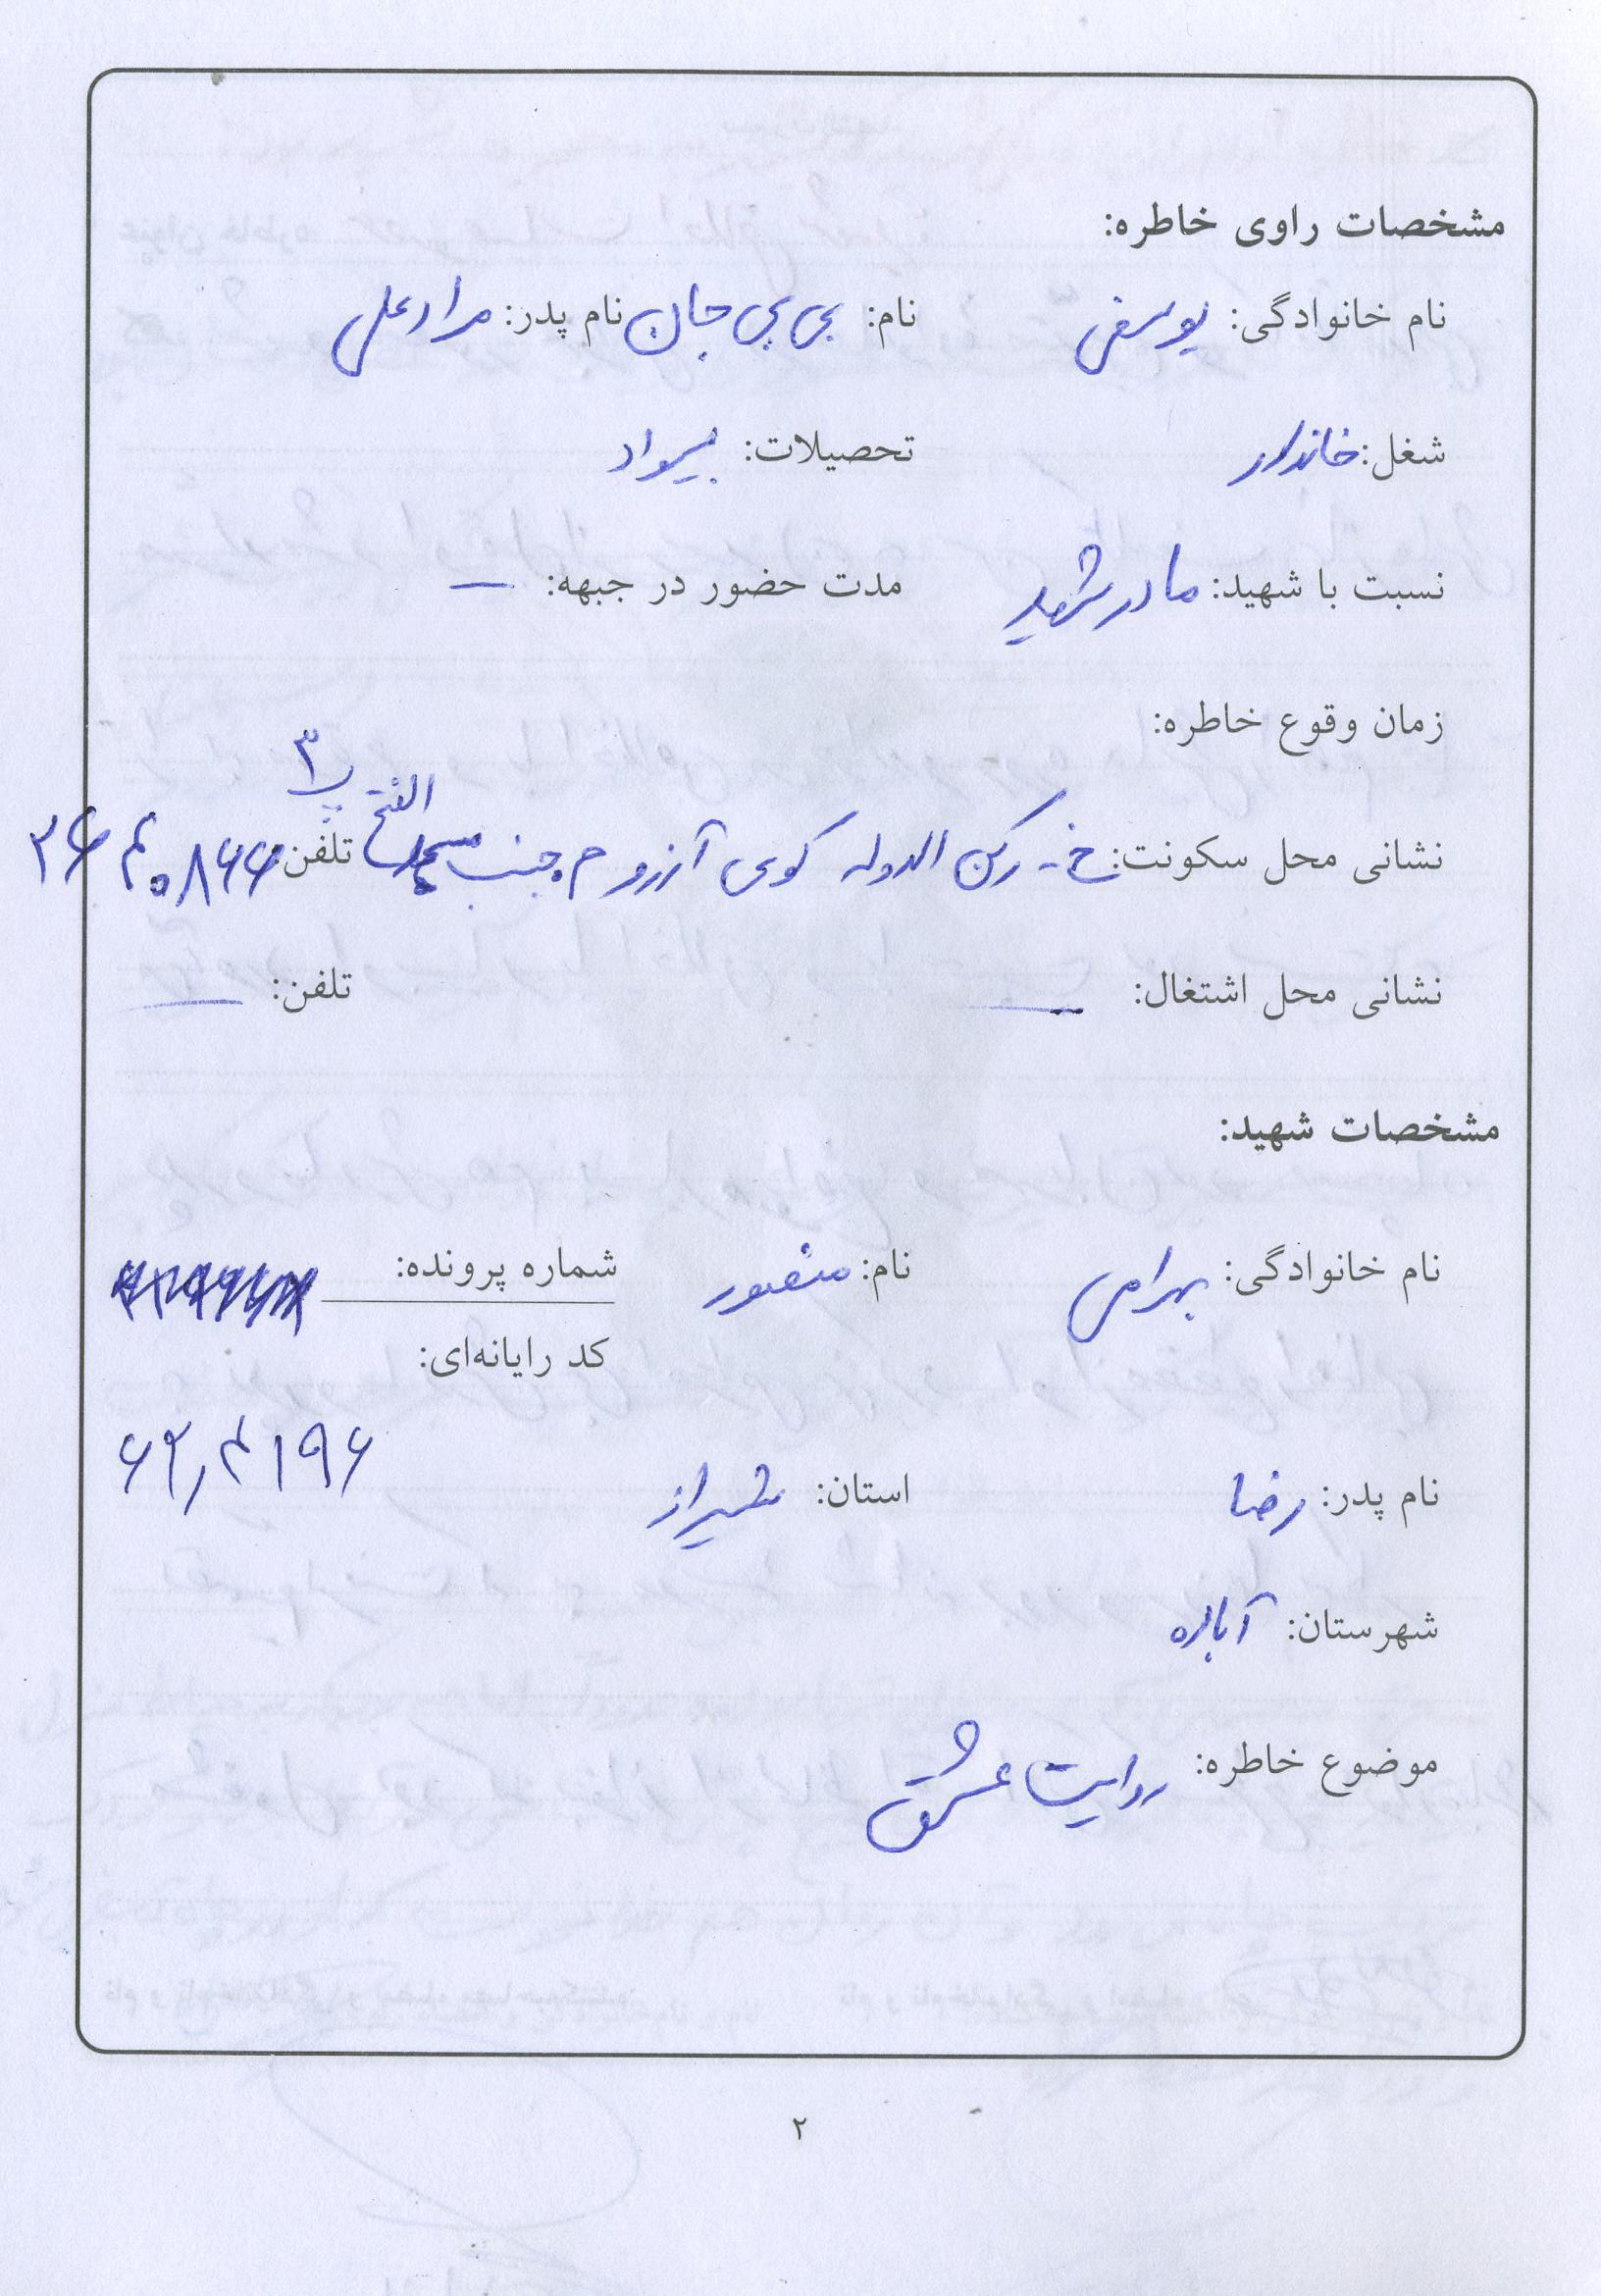 مشخصات راوی خاطره:
نام خانوادگی: یوسفی نام: بی بی جان نام پدر: مرادعلی
شغل: خاندار تحصیلات: بیسواد
نسبت با شهید: مادر شهید مدت حضور در جبهه: —
زمان وقوع خاطره:
نشانی محل سکونت: خ - رکن الدوله کوی آرزو م جنب مسجد الفتح پ ۳ تلفن
نشانی محل اشتغال: — تلفن: —
مشخصات شهید:
نام خانوادگی: بهرامی نام: منصور شماره پرونده:
کد رایانه‌ای:
نام پدر: رضا استان: شیراز
شهرستان: آباده
موضوع خاطره: روایت عشق
۲